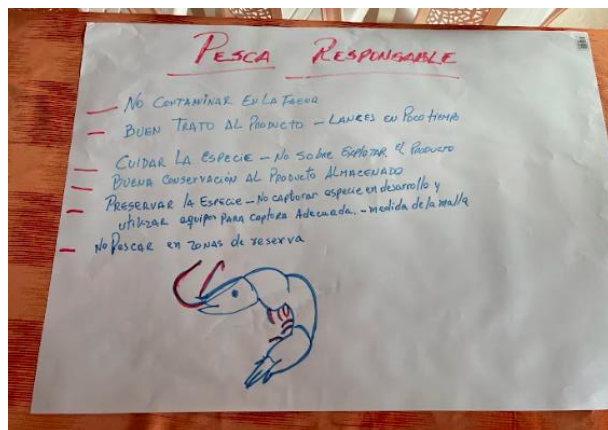 PESCA RESPONSABLE
— NO CONTAMINAR EN LA FAENA
— BUEN TRATO AL PRODUCTO – LANCES EN POCO tiempo
— CUIDAR LA ESPECIE – NO SOBRE EXPLOTAR EL PRODUCTO
— BUENA CONSERVACIÓN AL PRODUCTO ALMACENADO
— PRESERVAR LA ESPECIE – No capturar especie en desarrollo y
utilizar equipos PARA captura Adecuada. – medida de la malla
— No PESCAR en zonas de reserva